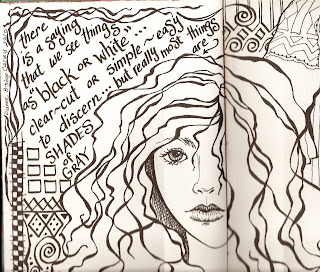 there
is a saying
that we see things...
as "black or white"...
clear-cut or simple... easy
to discern... but really most things
are
SHADES
OF
GRAY